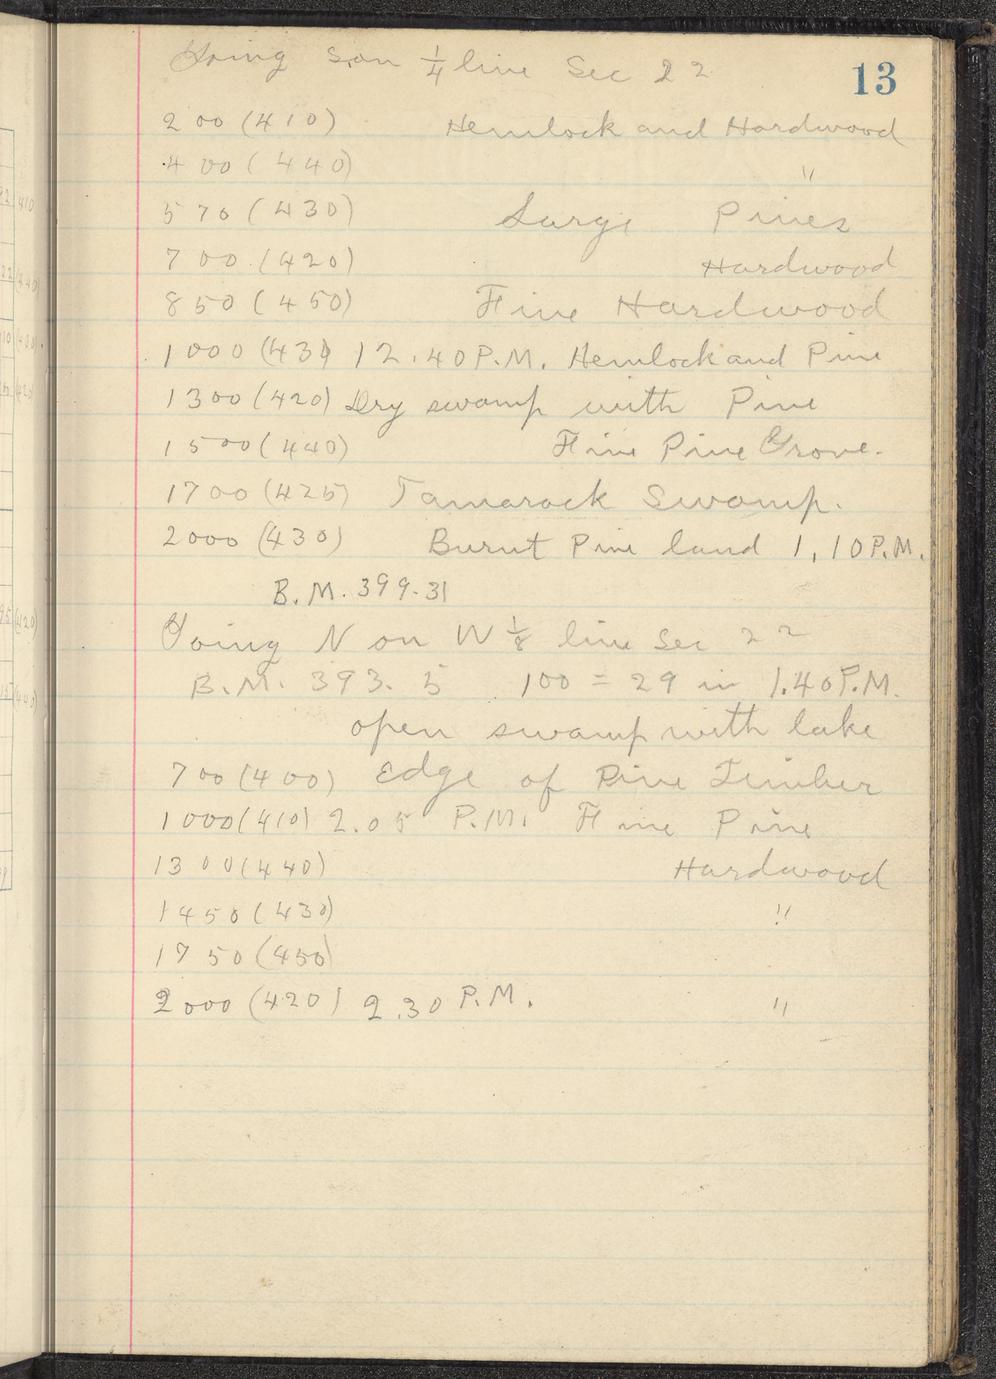 Going S. on 1/4 line Sec 22
13
200 (410) Hemlock and Hardwood
400 (440) "
570 (430) Large Pines
700 (420) Hardwood
850 (450) Fine Hardwood
1000 (430) 12.40 P.M. Hemlock and Pine
1300 (420) Dry swamp with Pine
1500 (440) Fine Pine Grove.
1700 (425) Tamarack Swamp.
2000 (430) Burnt Pine land 1,10 P.M.
B.M. 399.31
Going N on W 1/8 line Sec 22
B.M. 393.5 100 = 29 in 1.40 P.M.
open swamp with lake
700 (400) Edge of Pine Timber
1000 (410) 2.05 P.M. Fine Pine
1300 (440) Hardwood
1450 (430) "
1750 (450)
2000 (420) 2.30 P.M. "